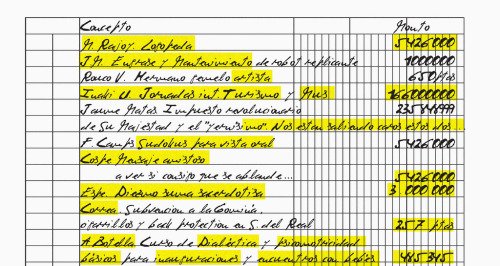 Concepto Monto
M. Rajoy. Logopeda 5426000
J.M. Engrase y Mantenimiento de robot replicante 1000000
Rosco V. Hermano gemelo artista 650 ptas
Iñaki U. Jornadas int. Turismo y Mus 166000000
Jaume Matas Impuesto revolucionario
de Su Majestad y el "yernisimo" Nos estan saliendo caros estos dos...
F. Camps Sudokus para vista oral 5426000
Cospe Mensaje amistoso
a ver si consigo que se ablande... 5426000
Espe. Diezmo suma sacerdotisa 3.000.000
Correa. Subvencion a la Gomina,
cigarrillos y back protection en S. del Real 257 ptas
A. Botella. Curso de Dialéctica y psicomotricidad
básicos para inauguraciones y encuentros con bebés 485345